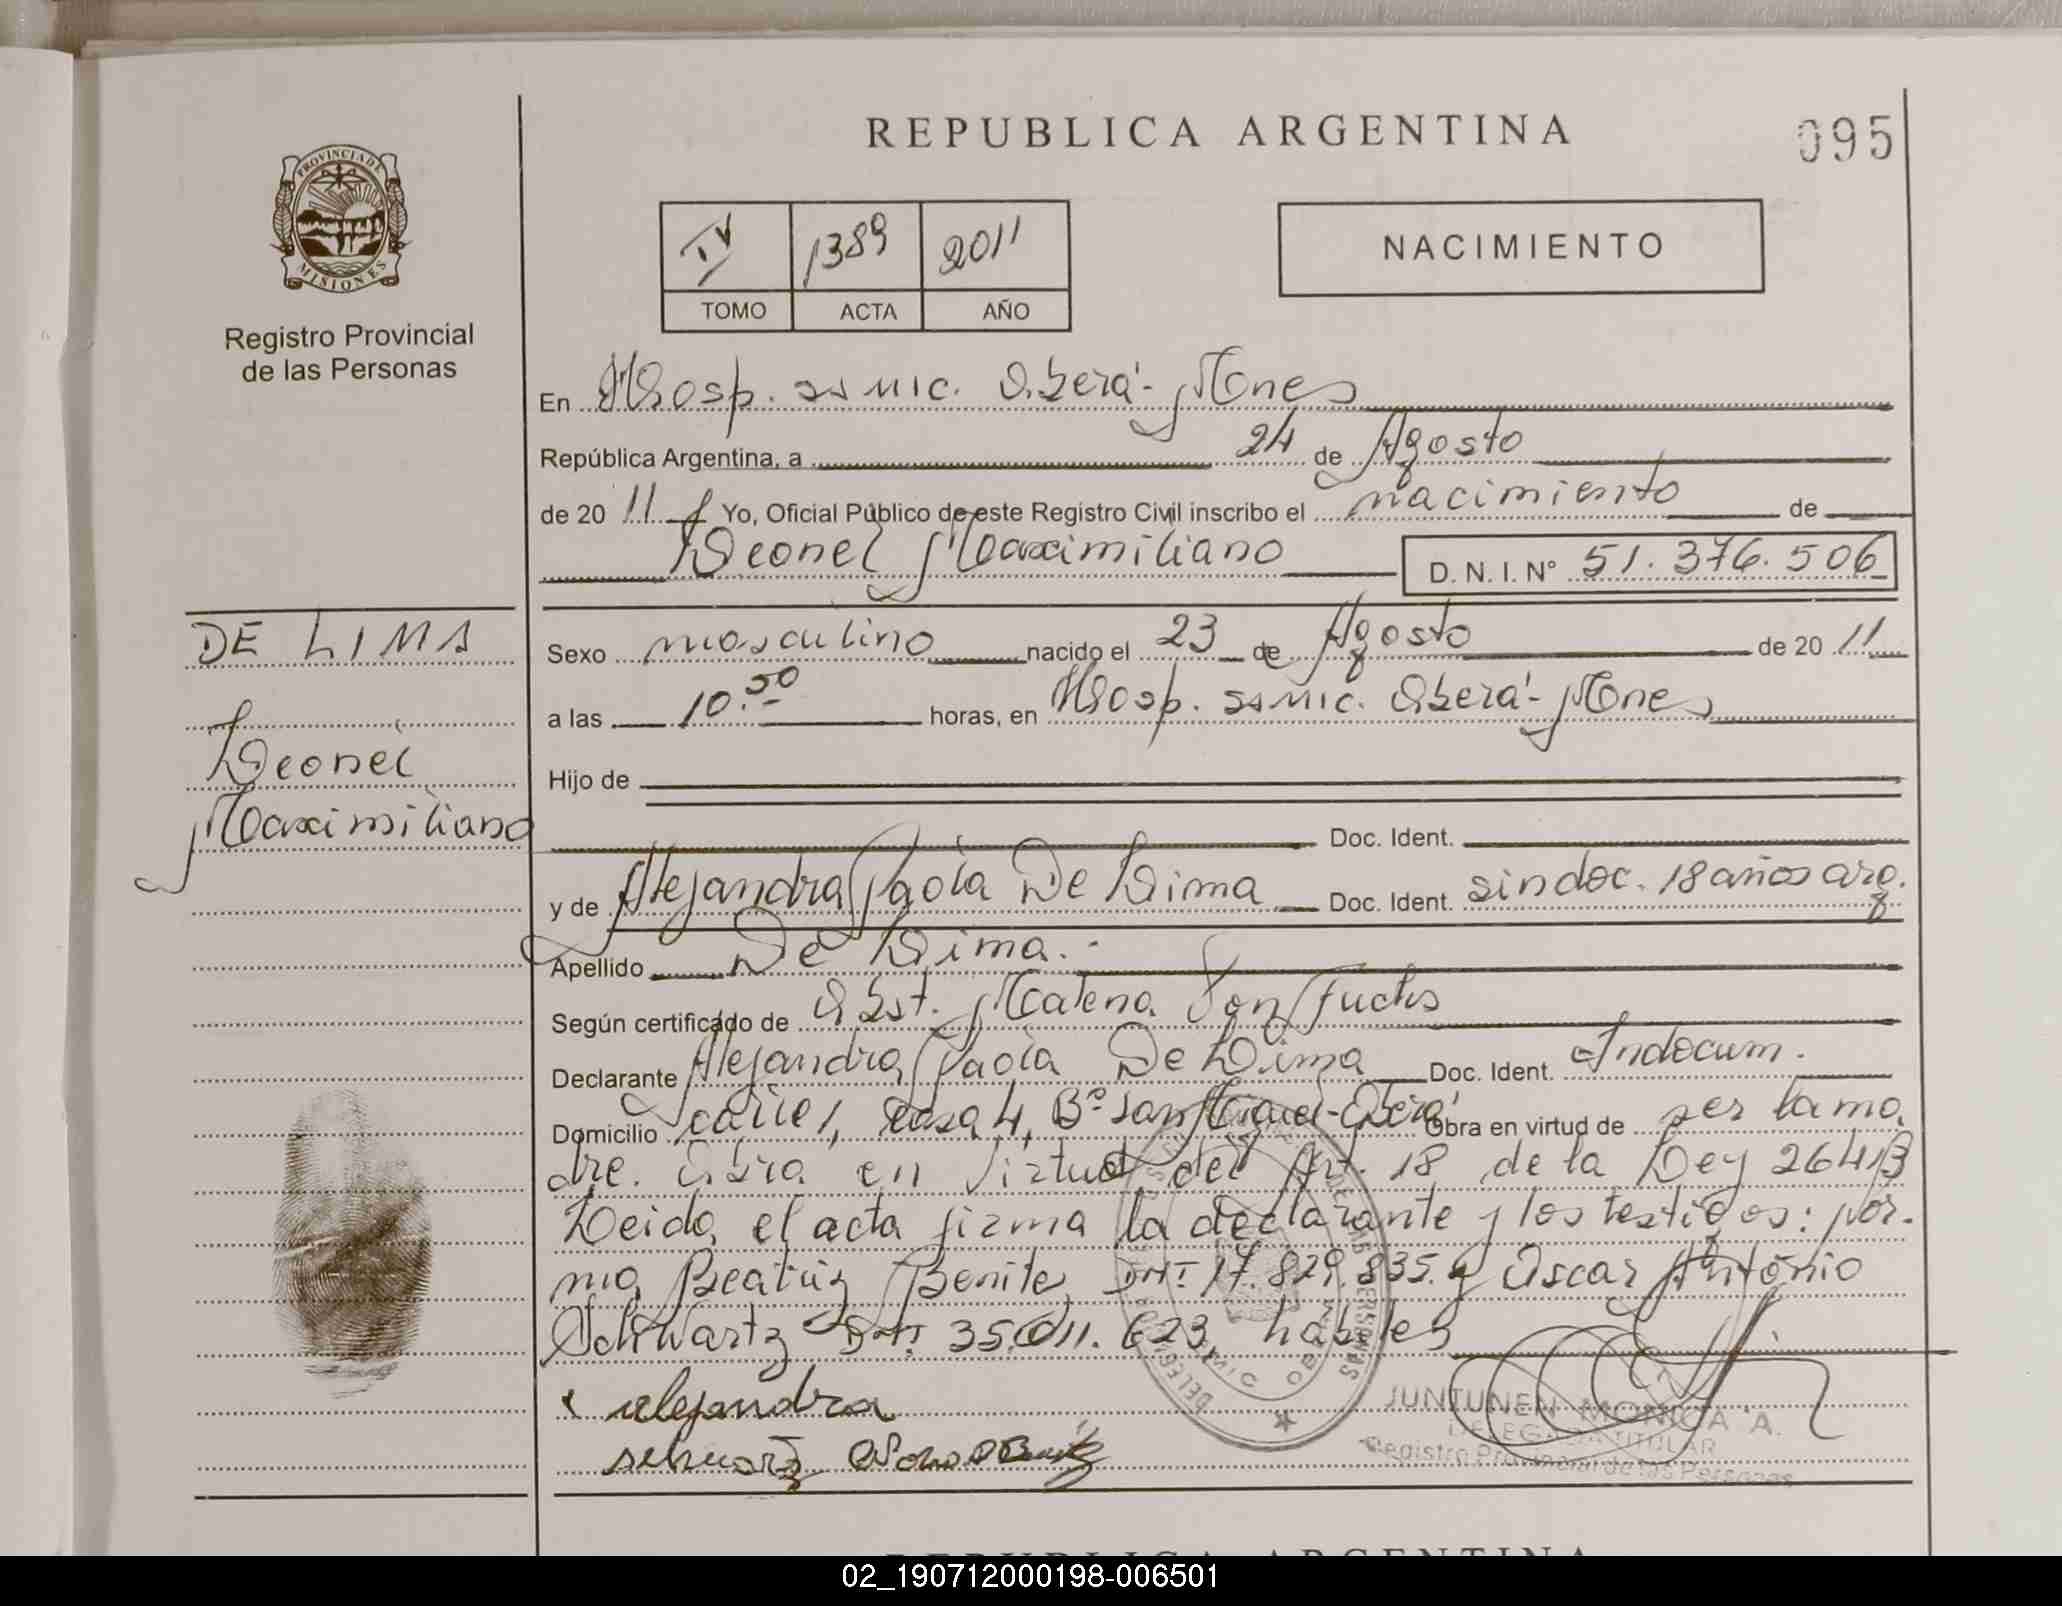 REPUBLICA ARGENTINA
095
PROVINCIA DE
MISIONES
Registro Provincial
de las Personas
IV 1389 2011
TOMO ACTA AÑO
NACIMIENTO
En Hosp. Oberá - Mnes
República Argentina, a 24 de Agosto
de 20 11 Yo, Oficial Público de este Registro Civil inscribo el nacimiento de
Leonel Maximiliano D. N. I. N° 51.376.506
DE LIMA
Leonel
Maximiliano
Sexo masculino nacido el 23 de Agosto de 20 11
a las 10.50 horas, en Hosp. Oberá - Mnes
Hijo de
Doc. Ident.
y de Alejandra Paola De Lima Doc. Ident. sin doc. 18 años arg.
Apellido De Lima.-
Según certificado de Obst. Von Fuchs
Declarante Alejandra Paola De Lima Doc. Ident. Indocum.
Domicilio calle 1, casa 4, B° San Miguel - Oberá Obra en virtud de ser la ma
dre. Obra en virtud del Art. 18 de la Ley 26413
Leida el acta firma la declarante y los testigos: Nor-
ma Beatriz Benitez DNI 17.829.835 y Oscar Antonio
Schwartz DNI 35.011.623 hábiles
x alejandra
JUNTUNEN MONICA A.
DELEGADA TITULAR
Registro Provincial de las Personas
REPUBLICA ARGENTINA
02_190712000198-006501